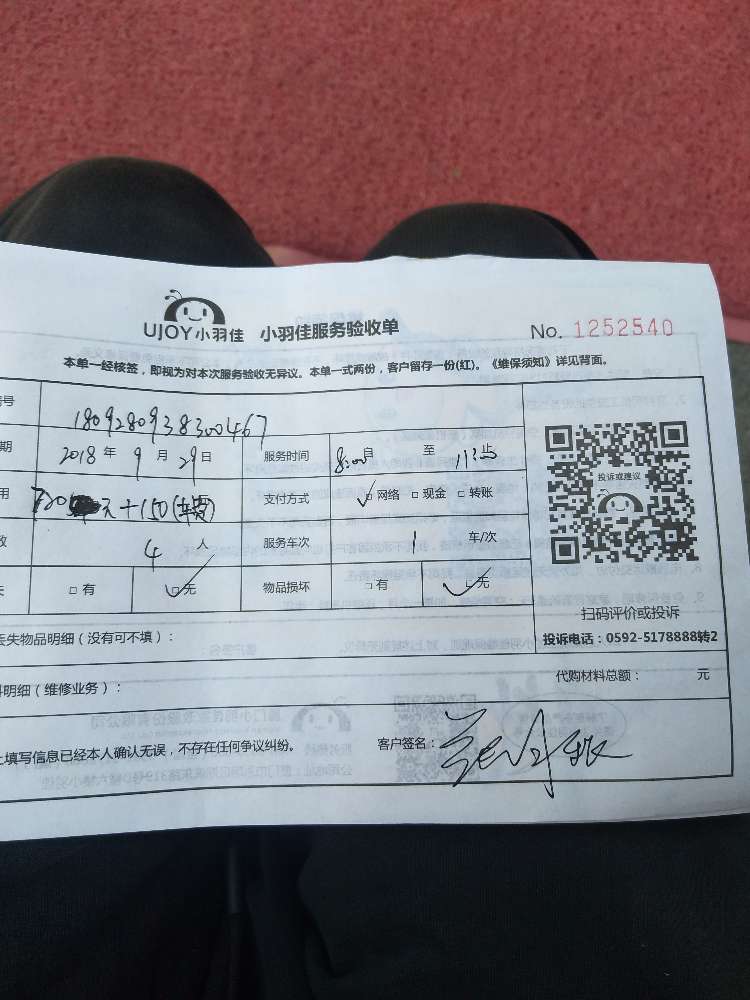 UJOY小羽佳 小羽佳服务验收单 No. 1252540
本单一经核签，即视为对本次服务验收无异议。本单一式两份，客户留存一份(红)。《维保须知》详见背面。
号 180928093838300467
期 2018 年 9 月 29 日 服务时间 8:00 自 至 11: 止
用 元+150(车费) 支付方式 □网络 □现金 □转账
数 4 人 服务车次 1 车/次
失 □有 □无 物品损坏 □有 □无
投诉或建议
扫码评价或投诉
投诉电话：0592-5178888转2
丢失物品明细（没有可不填）：
料明细（维修业务）： 代购材料总额： 元
上填写信息已经本人确认无误，不存在任何争议纠纷。 客户签名：